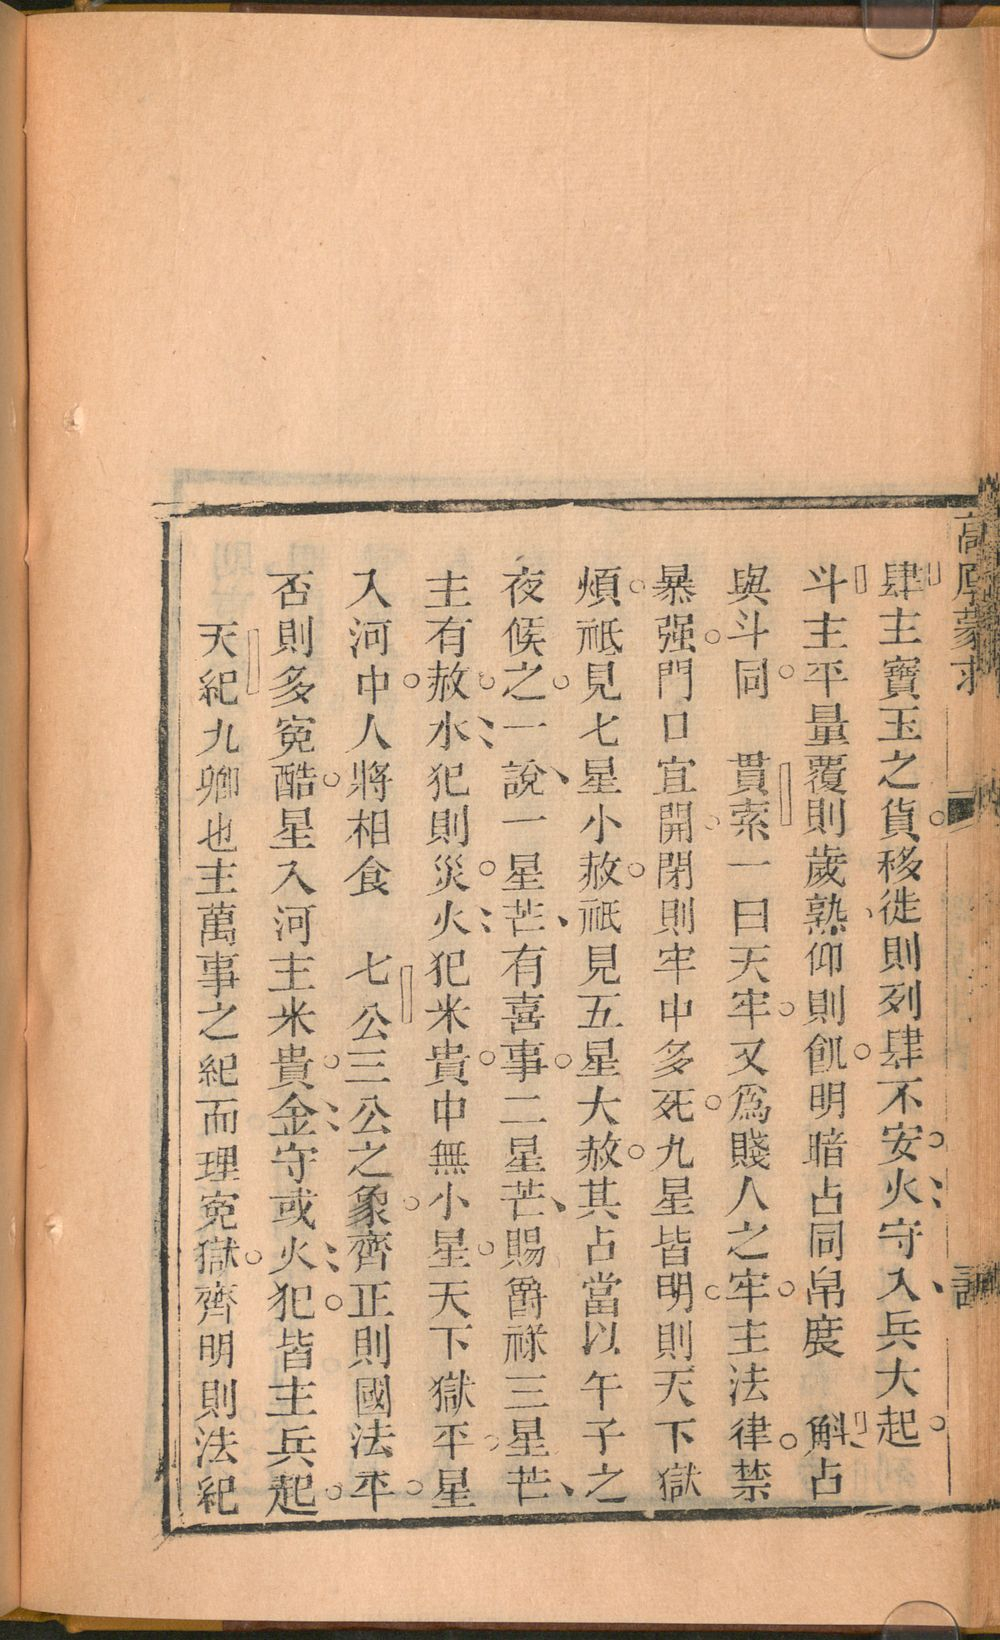 高厚蒙求
肆主寶玉之貨移徙則列肆不安火守入兵大起
斗主平量覆則歲熟仰則飢明暗占同帛度　斛占
與斗同　貫索一曰天牢又爲賤人之牢主法律禁
暴强門口宜開閉則牢中多死九星皆明則天下獄
煩祗見七星小赦祗見五星大赦其占當以午子之
夜候之一說一星芒有喜事二星芒賜爵祿三星芒
主有赦水犯則災火犯米貴中無小星天下獄平星
入河中人將相食　七公三公之象齊正則國法平
否則多寃酷星入河主米貴金守或火犯皆主兵起
天紀九卿也主萬事之紀而理寃獄齊明則法紀